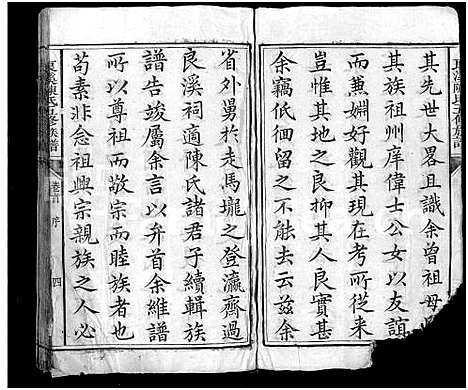 其先世大畧且識余曾祖母
其族祖州庠偉士公女以友誼
而蕪婣好觀其現在考所從来
豈惟其地之良抑其人良實甚
余竊低徊留之不能去云兹余
省外舅於走馬壠之登瀛齊過
良溪祠適陳氏諸君子續輯族
譜告竣屬余言以弁首余維譜
所以尊祖而敬宗而睦族者也
苟素非念祖興宗親族之人必
陳氏 修族譜
卷首 序 四